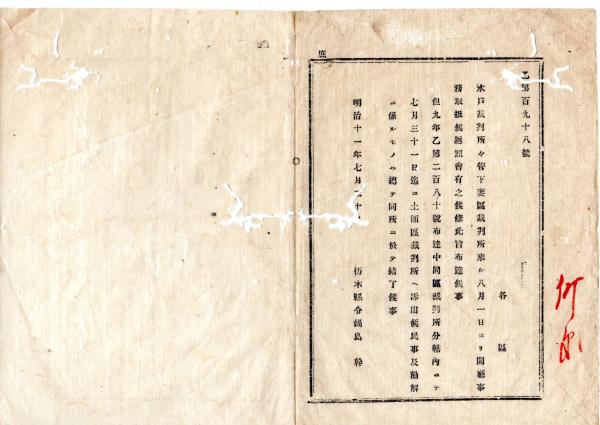 乙第百九十八號
各區
水戸裁判所々管下妻區裁判所來ル八月一日ヨリ開廳事
務取扱候趣照會有之候條此旨布達候事
但九年乙第二百八十號布達中同區裁判所分轄內ニテ
七月三十一日迄ニ土浦區裁判所ヘ訴出候民事及勸解
ニ係ルモノハ總テ同所ニ於テ結了候事
明治十一年七月二十
栃木縣令鍋島幹
庶